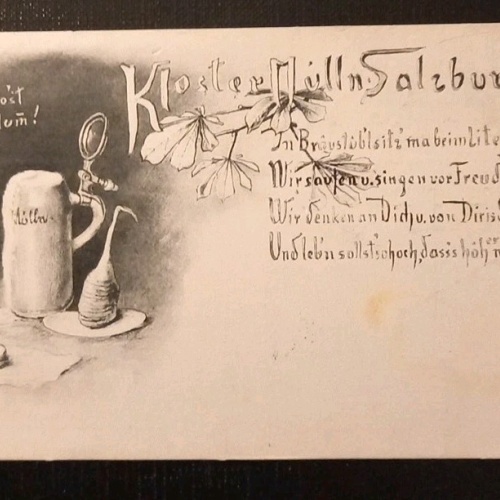 Kloster Mülln-Salzbur
ost
In Bräustüb'l sitz' ma beim Lite
Wir saufen u. singen vor Freud
Wir denken an Dich u. von Dir is
Und leb'n sollst's hoch, dass's höher n
Mölln